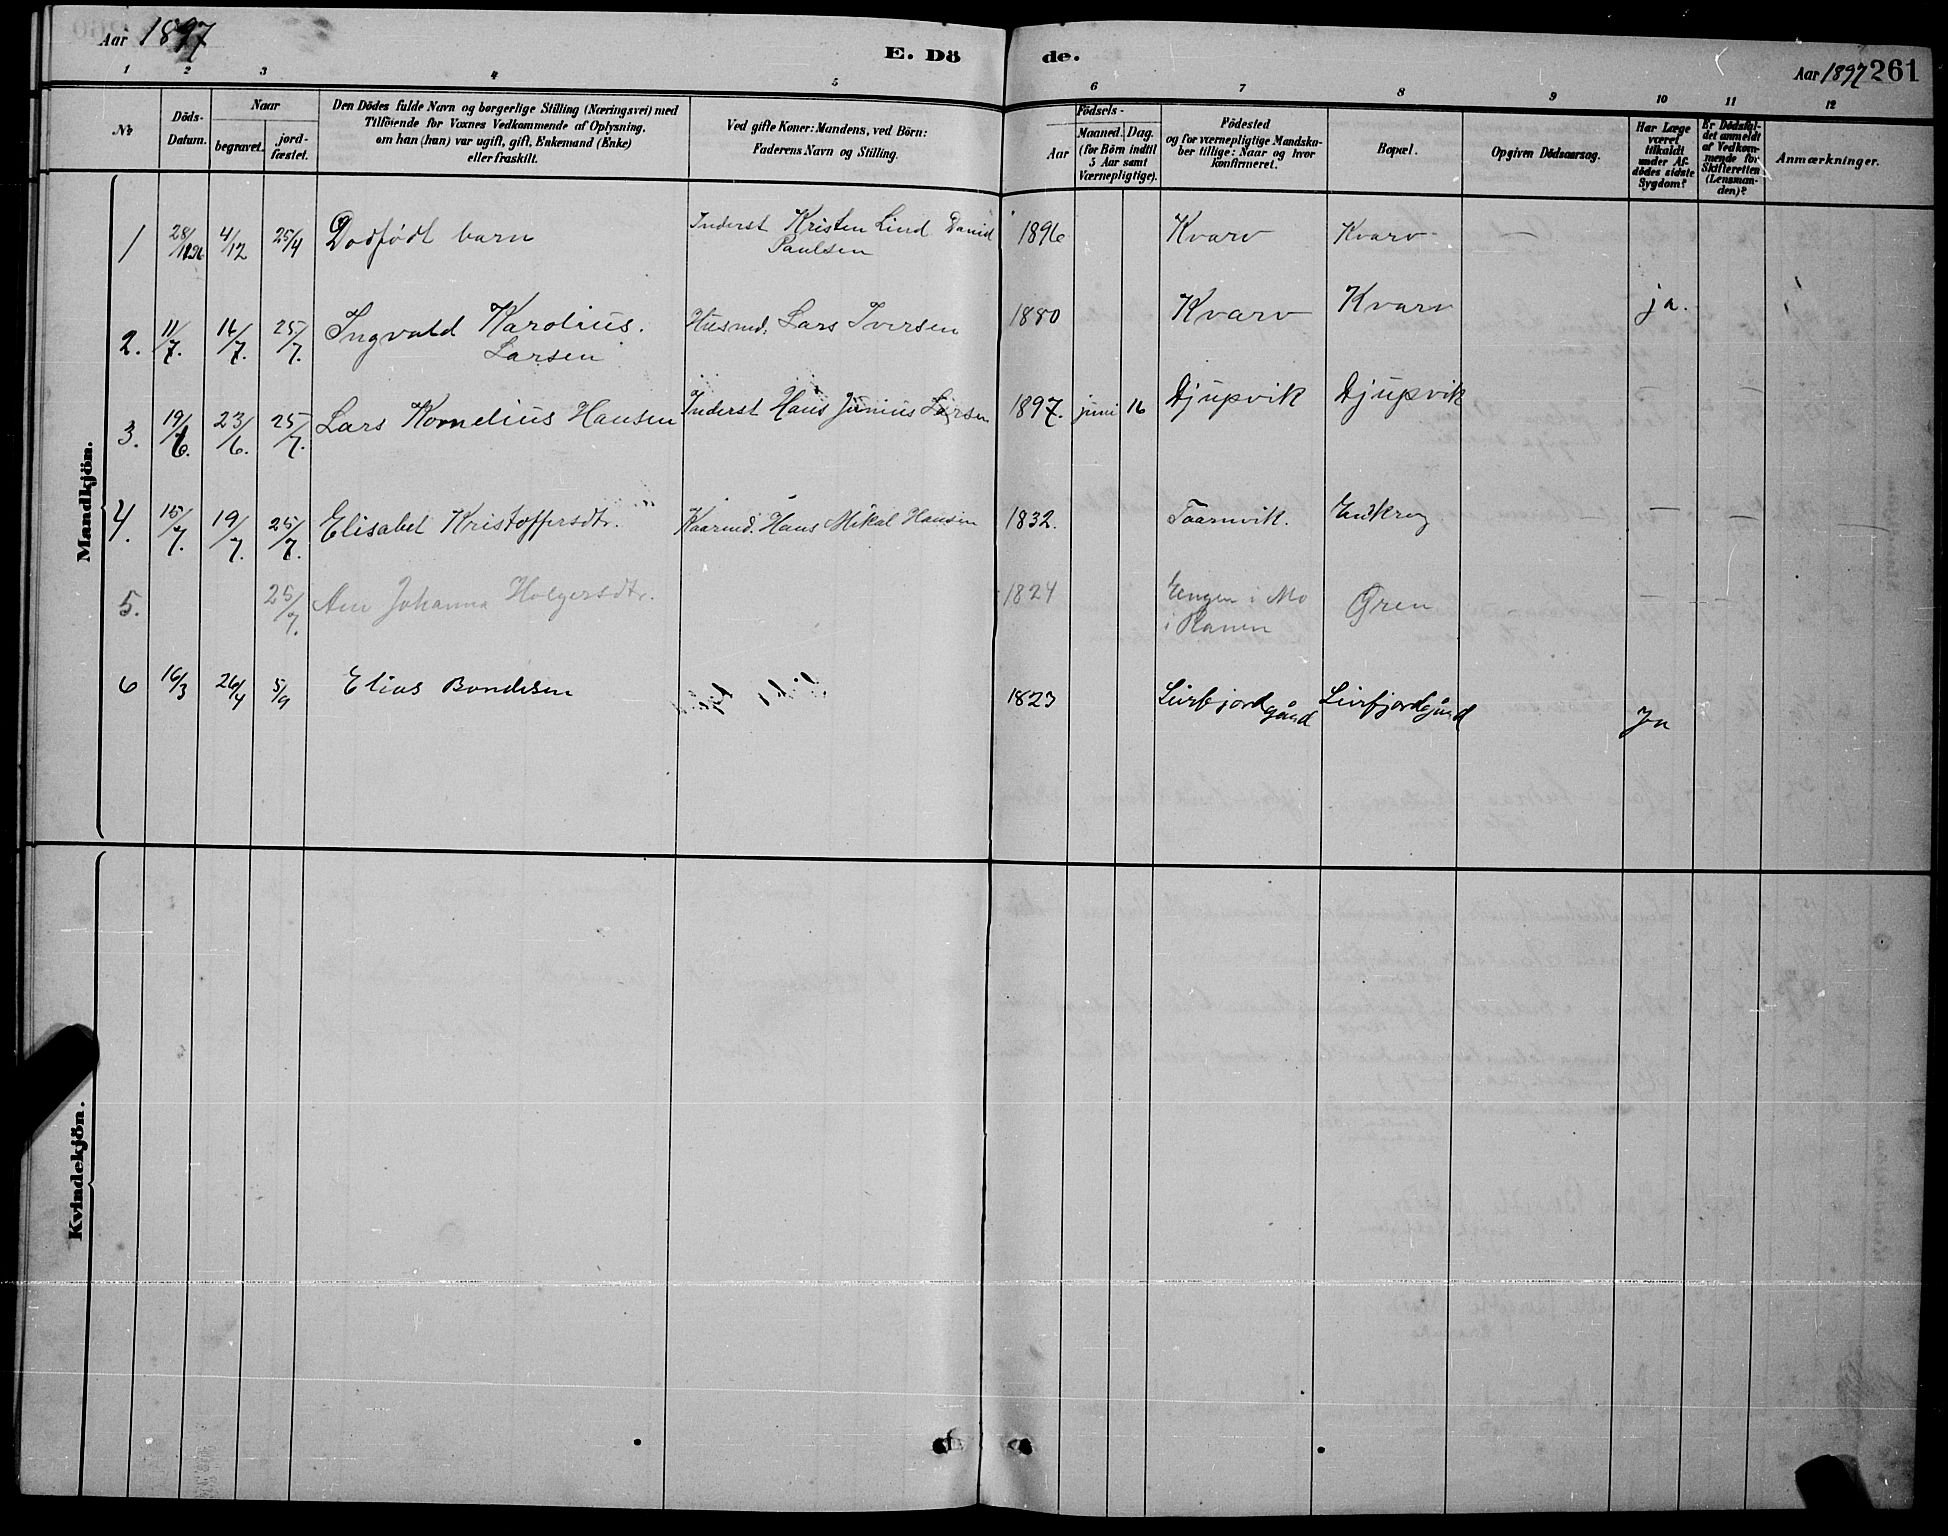 Aar 1897
E. Dö de.
Aar 1897 261
1 2 3 4 5 6 7 8 9 10 11 12
No
Döds-
Datum.
Naar
begravet.
jord-
fæstet.
Den Dödes fulde Navn og borgerlige Stilling (Næringsvei) med
Tilföiende for Voxnes Vedkommende af Oplysning,
om han (hun) var ugift, gift, Enkemand (Enke)
eller fraskilt.
Ved gifte Koner: Mandens, ved Börn:
Faderens Navn og Stilling.
Födsels-
Aar
Maaned. Dag.
(for Börn indtil
5 Aar samt
Værnepligtige).
Födested
og for værnepligtige Mandska-
ber tillige: Naar og hvor
konfirmeret.
Bopæl.
Opgiven Dödsaarsag.
Har Læge
været
tilkaldt
under Af-
dödes sidste
Sygdom?
Er Dödsfal-
det anmeldt
af Vedkom-
mende for
Skifteretten
(Lensman-
den)?
Anmærkninger.
Mandkjön.
1 28/11 1896 4/12 25/4 Dødfødt barn Inderst Kristen Lind David 1896 Kvarv Kvarv —
Paulsen
2. 11/7. 16/7. 25/7. Ingvald Karolius. Husmd. Lars Iversen 1880 Kvarv Kvarv ja.
Larsen
3. 19/6. 23/6. 25/7. Lars Kornelius Hansen Inderst Hans Junius Larsen 1897. juni 16 Djupvik Djupvik — —
4. 15/7. 19/7. 25/7. Elisabet Kristoffersdtr. Kaarmd. Hans Mikal Hansen 1832. Taarnvik. — — —
5. 25/7. Ane Johanna Holgersdtr. 1824 Engen i Mo Gren — — —
i Ranen
6 16/3 26/4 5/9 Elias Bondesen 1823 Leirfjordgård Leirfjordgård Ja
Kvindekjön.